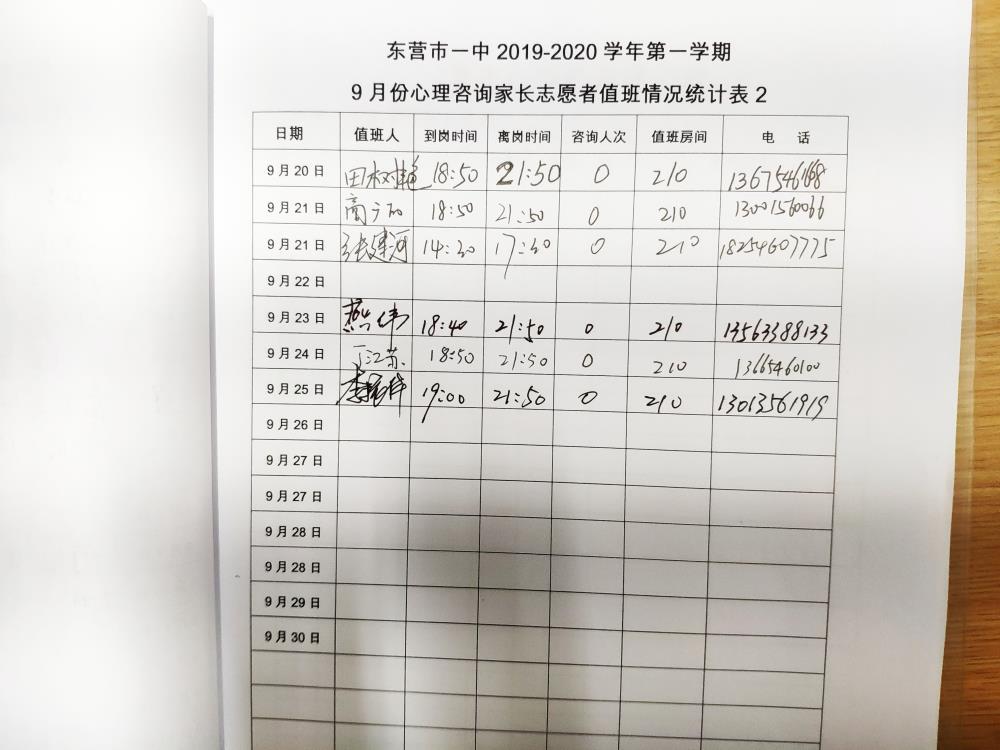 东营市一中 2019-2020 学年第一学期
9 月份心理咨询家长志愿者值班情况统计表 2
日期 值班人 到岗时间 离岗时间 咨询人次 值班房间 电 话
9 月 20 日 田树艳 18:50 21:50 0 210 13675461168
9 月 21 日 18:50 21:50 0 210 13001560066
9 月 21 日 张建河 14:30 17:30 0 210 18254607775
9 月 22 日
9 月 23 日 燕伟 18:40 21:50 0 210 13563388133
9 月 24 日 丁江苏 18:50 21:50 0 210 13665460100
9 月 25 日 19:00 21:50 0 210 13013561919
9 月 26 日
9 月 27 日
9 月 27 日
9 月 28 日
9 月 28 日
9 月 29 日
9 月 30 日